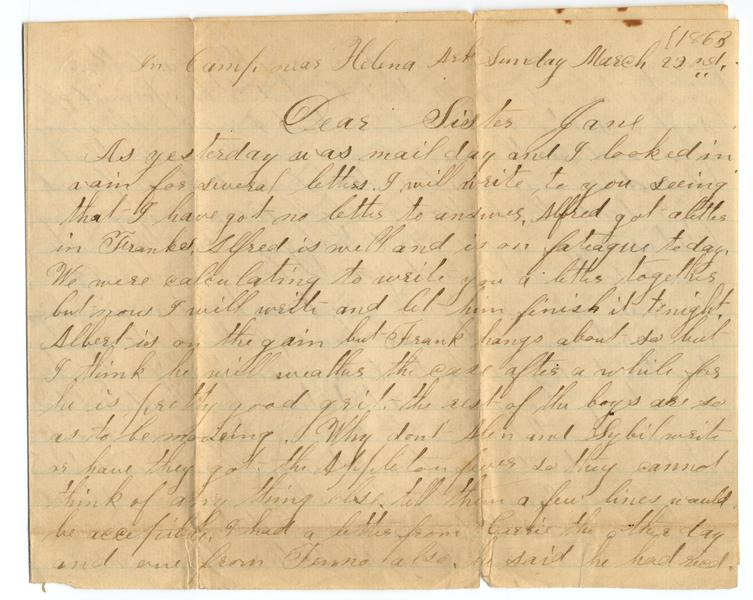 [1863
In Camp near Helena Ark Sunday March 22nd.
Dear Sister Jane
As yesterday was mail day and I looked in
vain for several letters I will write to you seeing
that I have got no letter to answer. Alfred got a letter
in Franks. Alfred is well and is on fateague today.
We were calculating to write you a letter together
but now I will write and let him finish it tonight.
Albert is on the gain but Frank hangs about so but
I think he will weather the case after a while for
he is pretty good grit. the rest of the boys are so
as to be mooving. Why dont and Sybil write
or have they got the Appleton fever so they cannot
think of any thing else. tell them a few lines would
be acceptible. I had a letter from Carrie the other day
and one from also. he said he had